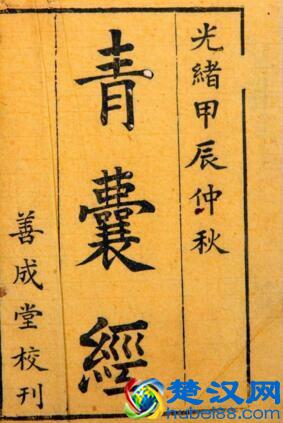 光緒甲辰仲秋
青囊經
善成堂校刊
楚汉网
hubei88.com